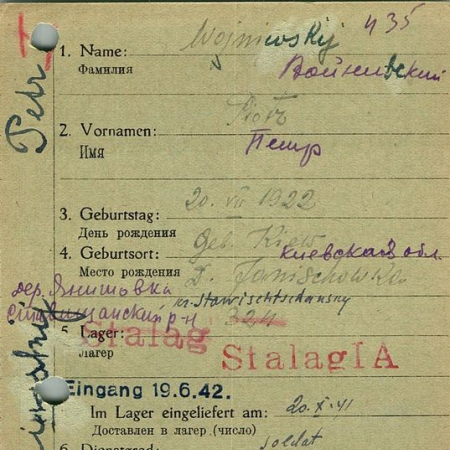 435
1. Name: Wojniwskij
Фамилия Войнивский
Petr
2. Vornamen: Piotr
Имя Петр
3. Geburtstag: 20. VII 1922
День рождения
4. Geburtsort: Geb. Kiew Киевская обл.
Место рождения D. Janischowka
дер. Янишовка
kr. Stawischtschansky
р-н
5. Lager: Stalag 324
Лагер Stalag IA
Eingang 19.6.42.
Im Lager eingeliefert am: 20. X. 41
Доставлен в лагер (число)
6. Dienstgrad: soldat